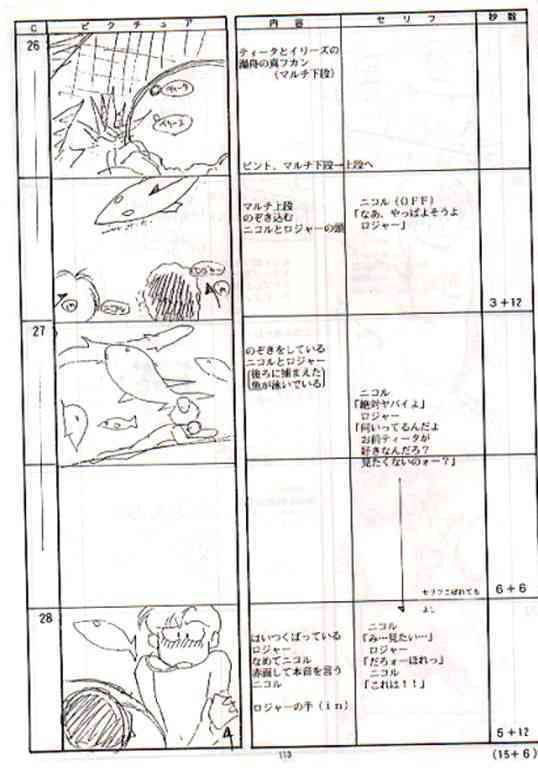 C
ピクチュア
内容
セリフ
秒数
26
ティータ
イリーズ
ティータとイリーズの
湯舟の真フカン
(マルチ下段)
ピント、マルチ下段→上段へ
ニコル
マルチ上段
のぞき込む
ニコルとロジャーの頭
ニコル(OFF)
「なあ、やっぱよそうよ
ロジャー」
3+12
27
のぞきをしている
ニコルとロジャー
(後ろに捕まえた
魚が泳いでいる)
ニコル
「絶対ヤバイよ」
ロジャー
「何いってるんだよ
お前ティータが
好きなんだろ?
見たくないのォー?」
セリフこぼれても
よし
6+6
28
はいつくばっている
ロジャー
なめてニコル
赤面して本音を言う
ニコル
ロジャーの手(in)
ニコル
「み…見たい…」
ロジャー
「だろォーほれっ」
ニコル
「これは!!」
5+12
113
(15+6)